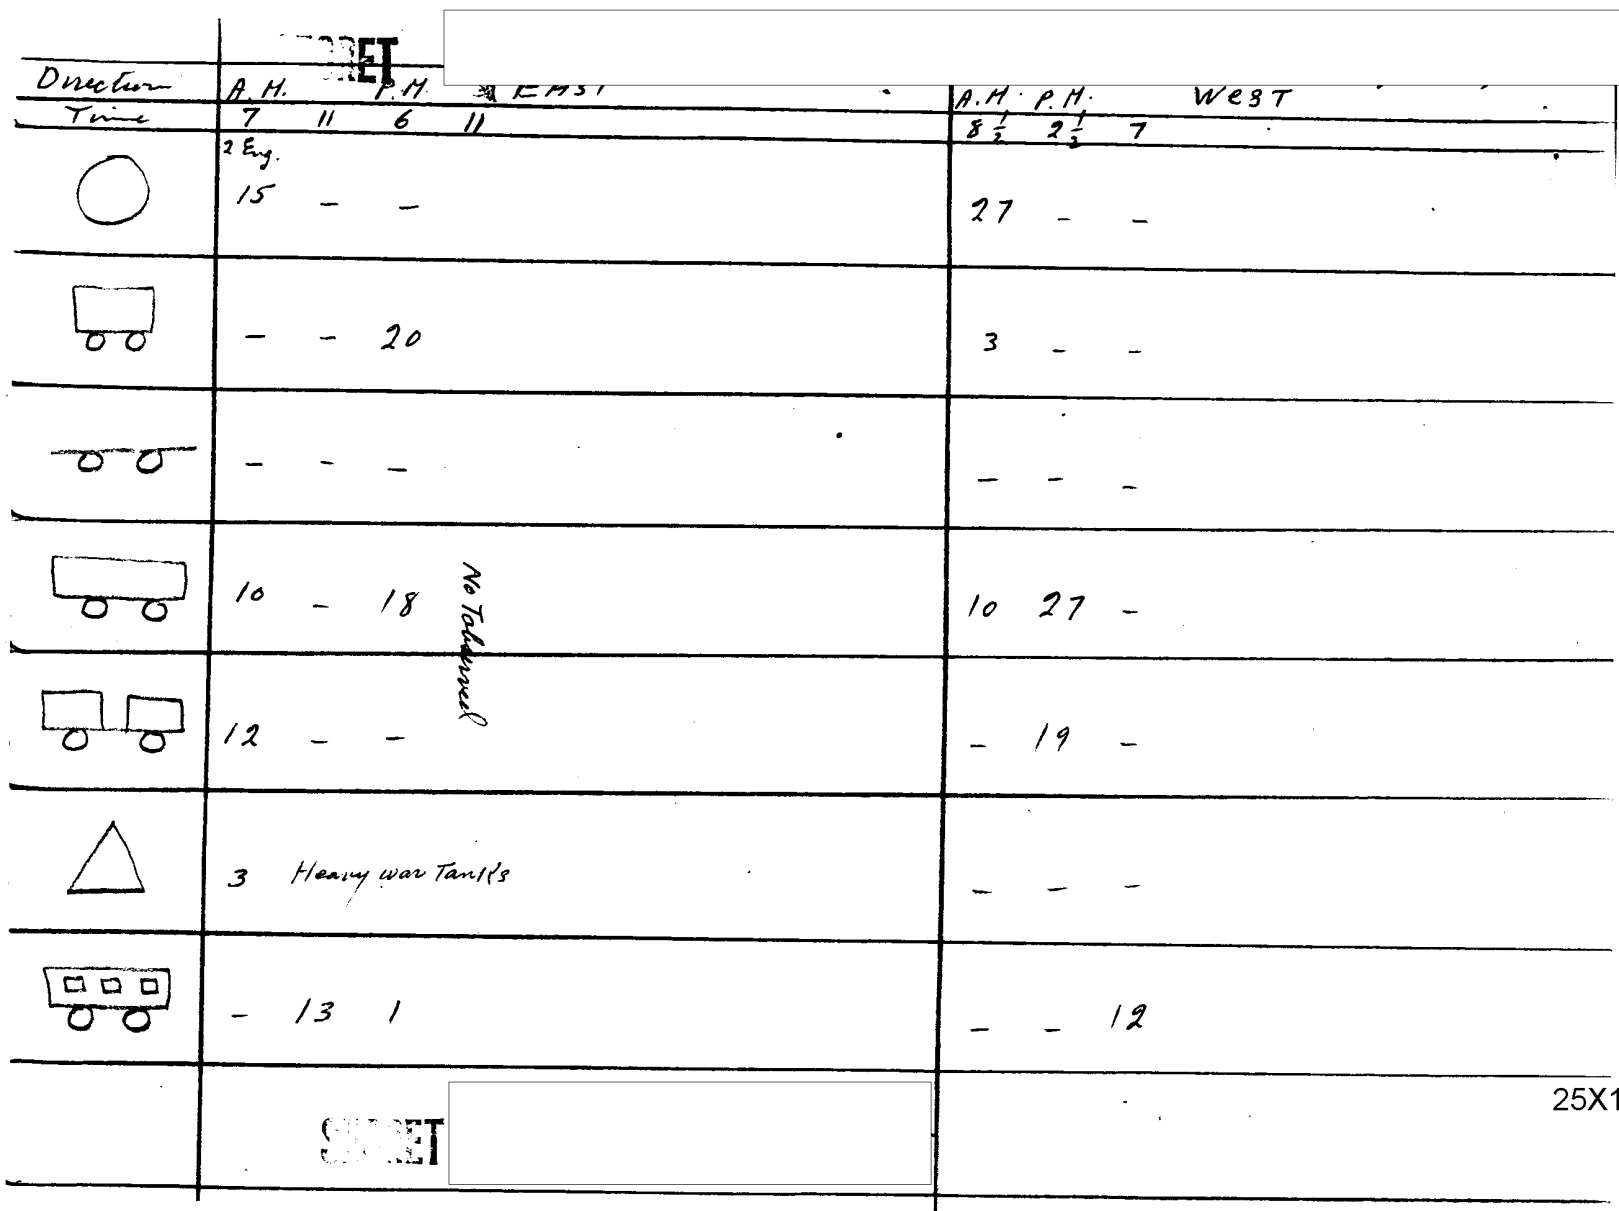 SECRET
Direction A.M. P.M. EAST A.M. P.M. West
Time 7 11 6 11 8 1/2 2 1/2 7
2 Eng.
15 - - 27 - -
- - 20 3 - -
- - - - - -
10 - 18 10 27 -
No Tobserved
12 - - - 19 -
3 Heavy war Tanks - - -
- 13 1 - - 12
25X1
SECRET